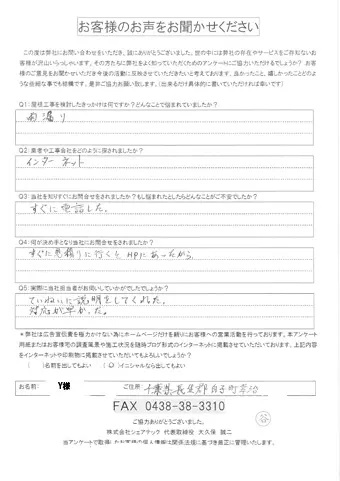 お客様のお声をお聞かせください
この度は弊社にお問い合わせをいただき、誠にありがとうございました。世の中には弊社の存在やサービスをご存知ないお
客様が沢山いらっしゃいます。その方たちに弊社をよく知っていただくためのアンケートにご協力いただけるでしょうか? お客
様のご意見をお聞かせいただき今後の活動に反映させていただきたいと考えております。良かったこと、嬉しかったことどのよ
うな些細な事でも結構です。是非ご協力お願い致します。(出来るだけ具体的に書いていただければ幸いです)
Q1:屋根工事を検討したきっかけは何ですか?どんなことで悩まれていましたか?
雨漏り
Q2:業者や工事会社をどのように探されましたか?
インターネット
Q3:当社を知りすぐにお問合せをされましたか?もし悩まれたとしたらどんなことがご不安でしたか?
すぐに電話した。
Q4:何が決め手となり当社にお問合せをされましたか?
すぐに見積りに行くと HPにあったから
Q5:実際に当社担当者がお伺いしていかがでしたでしょうか?
ていねいに説明をしてくれた。
対応が早かった。
*弊社は広告宣伝費を極力かけない為にホームページだけを頼りにお客様への営業活動を行っております。本アンケート
用紙またはお客様宅の調査風景や施工状況を随時ブログ形式のインターネットに掲載させていただいております。上記内容
をインターネットや印刷物に掲載させていただいてもよろしいでしょうか?
( )名前を出してもよい (○)イニシャルなら出してもよい
お名前: Y様 ご住所: 千葉県長生郡白子町幸治
FAX 0438-38-3310
ご協力ありがとうございました。
株式会社シェアテック 代表取締役 大久保 誠二
当アンケートで取得したお客様の個人情報は関係法規に基づき厳正に管理いたします。